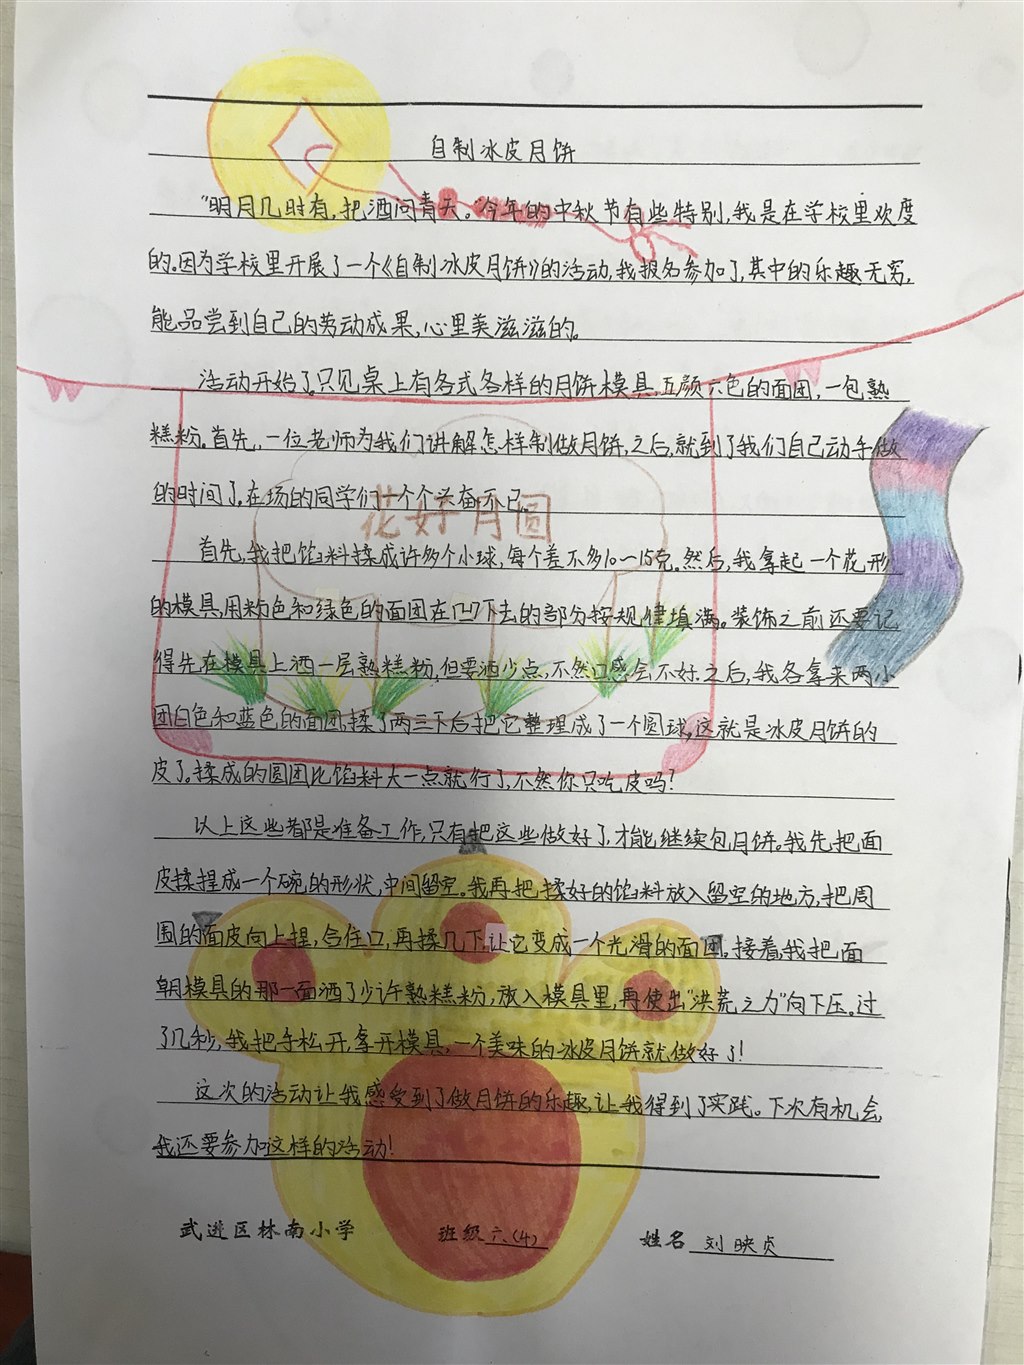 自制冰皮月饼
“明月几时有,把酒问青天。”今年的中秋节有些特别,我是在学校里欢度
的。因为学校里开展了一个《自制冰皮月饼》的活动,我报名参加了,其中的乐趣无穷,
能品尝到自己的劳动成果,心里美滋滋的。
活动开始了。只见桌上有各式各样的月饼模具,五颜六色的面团,一包熟
糕粉。首先,一位老师为我们讲解怎样制做月饼,之后,就到了我们自己动手做
的时间了。在场的同学们一个个兴奋不已。
花好月圆
首先,我把馅料揉成许多个小球,每个差不多10~15克。然后,我拿起一个花形
的模具,用粉色和绿色的面团在凹下去的部分按规律填满。装饰之前还要记
得先在模具上洒一层熟糕粉,但要洒少点,不然口感会不好。之后,我各拿来两小
团白色和蓝色的面团,揉了两三下后把它整理成了一个圆球,这就是冰皮月饼的
皮了。揉成的圆团比馅料大一点就行了,不然你只吃皮吗?
以上这些都是准备工作,只有把这些做好了,才能继续包月饼。我先把面
皮揉捏成一个碗的形状,中间留空。我再把揉好的馅料放入留空的地方,把周
围的面皮向上捏,合住口,再揉几下,让它变成一个光滑的面团。接着,我把面
朝模具的那一面洒了少许熟糕粉,放入模具里,再使出“洪荒之力”向下压。过
了几秒,我把手松开,拿开模具,一个美味的冰皮月饼就做好了!
这次的活动让我感受到了做月饼的乐趣,让我得到了实践。下次有机会,
我还要参加这样的活动!
武进区林南小学 班级 六(4) 姓名 刘映贞